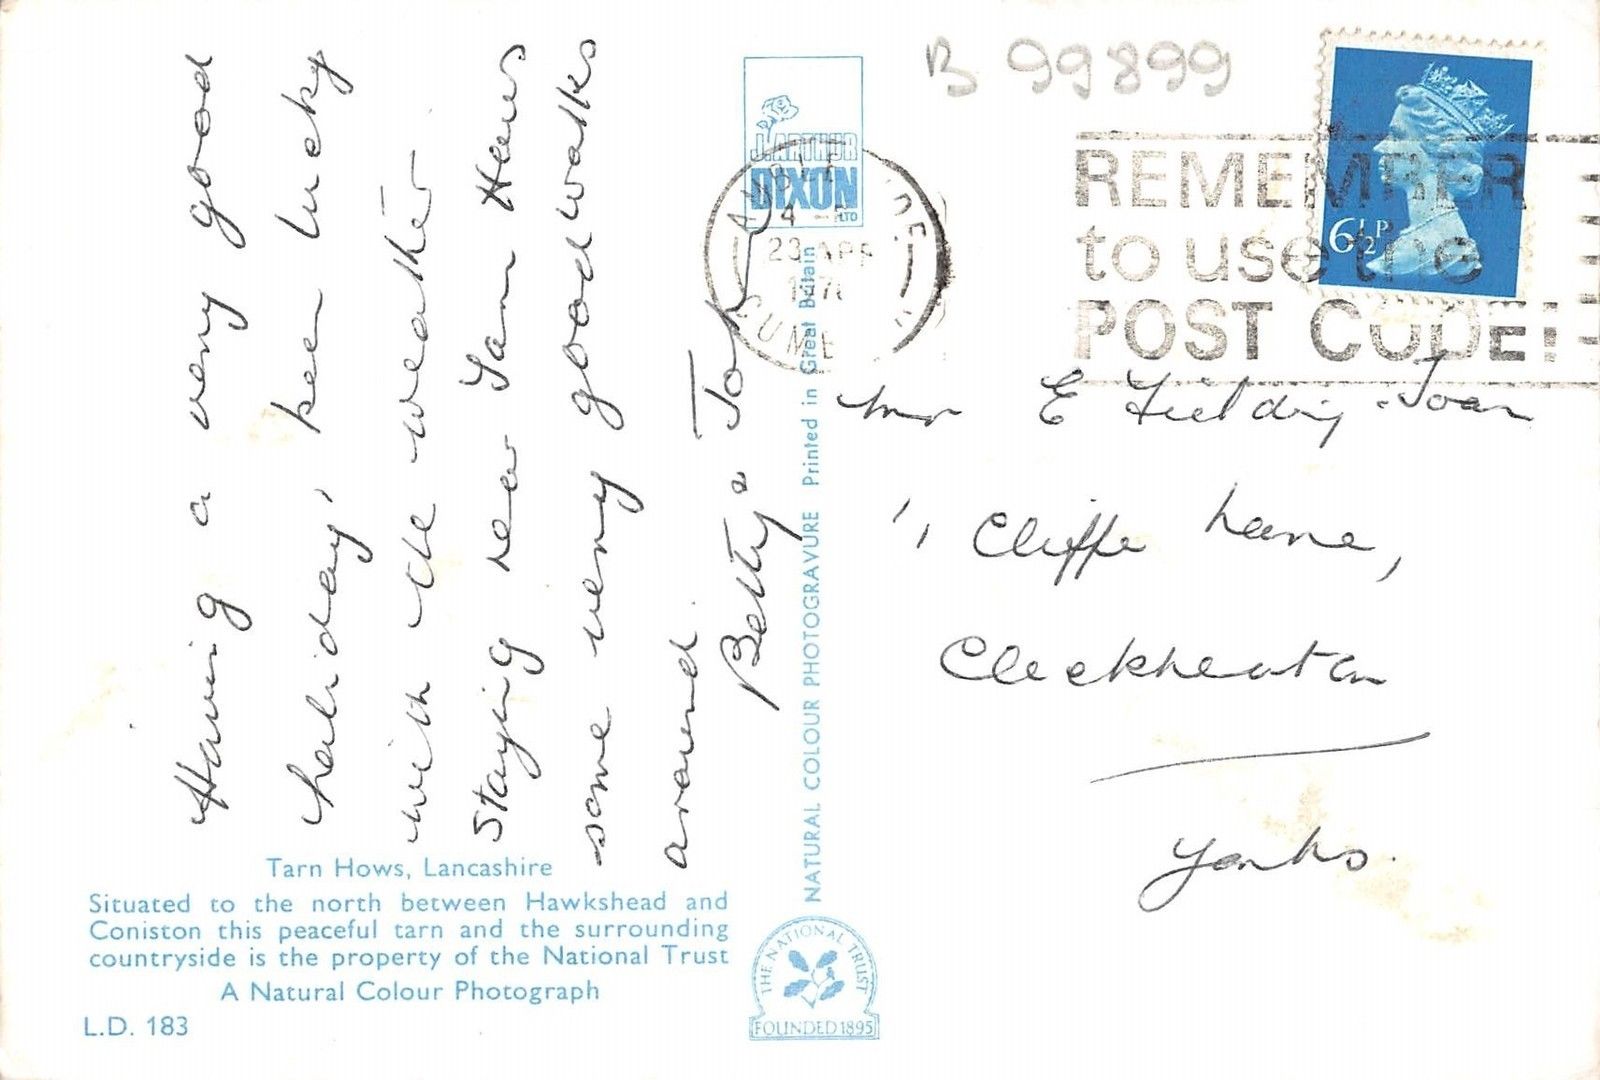 Having a very good
holiday, been lucky
with the weather
Staying near Tarn Hows
some very good walks
around.
Betty & Jack
Tarn Hows, Lancashire
Situated to the north between Hawkshead and
Coniston this peaceful tarn and the surrounding
countryside is the property of the National Trust
A Natural Colour Photograph
L.D. 183
J. ARTHUR
DIXON
LTD
NATURAL COLOUR PHOTOGRAVURE Printed in Great Britain
THE NATIONAL TRUST
FOUNDED 1895
B 99899
23 APR
REMEMBER
to use the
POST CODE!
6½P
E Fielding & Joan
11 Cliffe Lane,
Cleckheaton
Yorks.